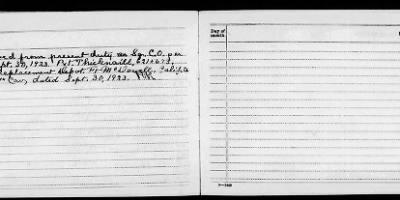 ved from present duty as Sqn. C.O. per
pt. 30, 1933. Pvt. Thicknaill, 6214673,
eplacement Depot, Ft. McDowell, Calif. to
Cav, dated Sept. 30, 1933.
Day of
month